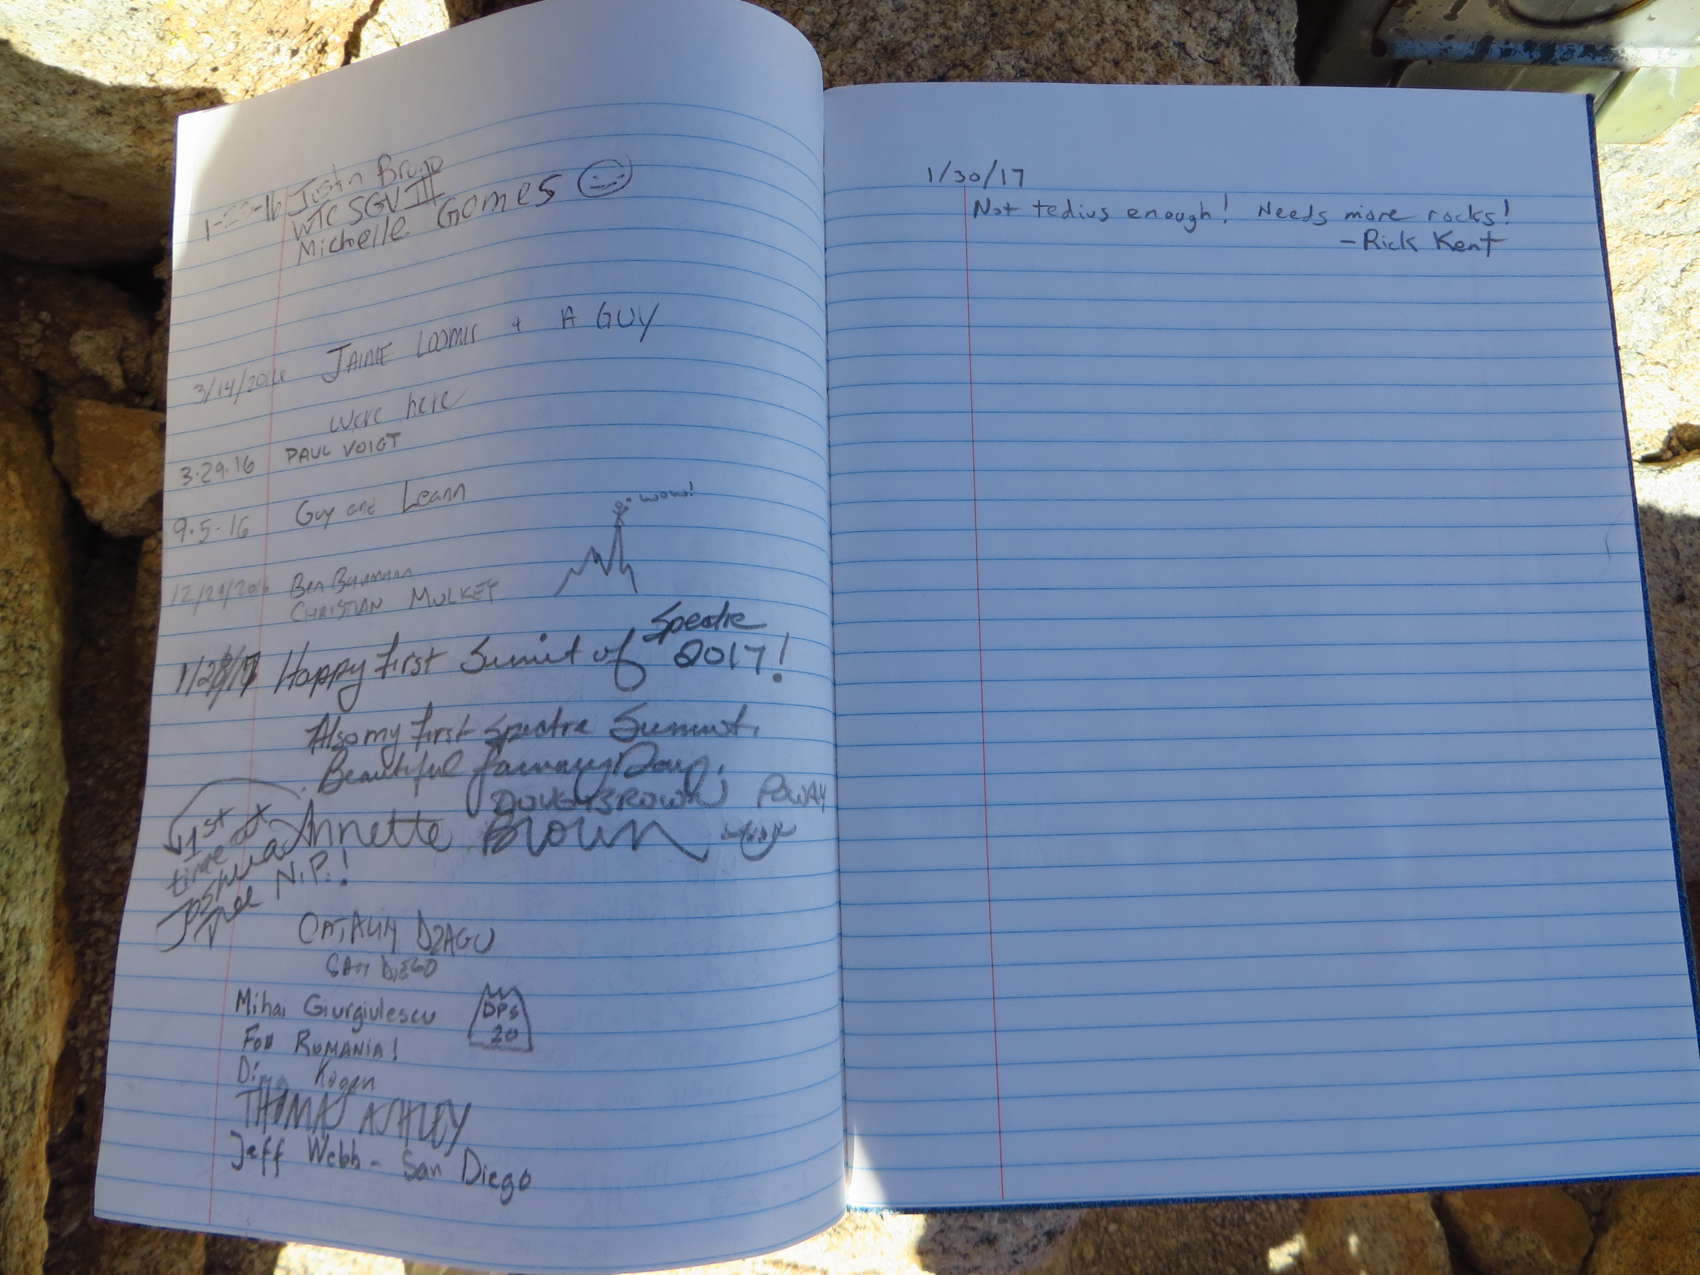 Justin
WTC SGV III
Michelle Gomes
JAIME LOOMIS + A GUY
3/14/2016
were here
3.29.16 PAUL VOIGT
9.5.16 Guy and Leann
wow!
Ben
CHRISTIAN MULKEY
Spectre
Happy first Summit of 2017!
Also my first Spectre Summit.
Beautiful January Day.
POWAY
Annette Brown
1st
time at
Joshua
Tree N.P.!
CATALIN DZAGU
SAN DIEGO
Mihai Giurgiulescu
DPS
20
FOR ROMANIA!
Kogan
THOMAS ASHLEY
Jeff Webb - San Diego
1/30/17
Not tedius enough! Needs more rocks!
- Rick Kent